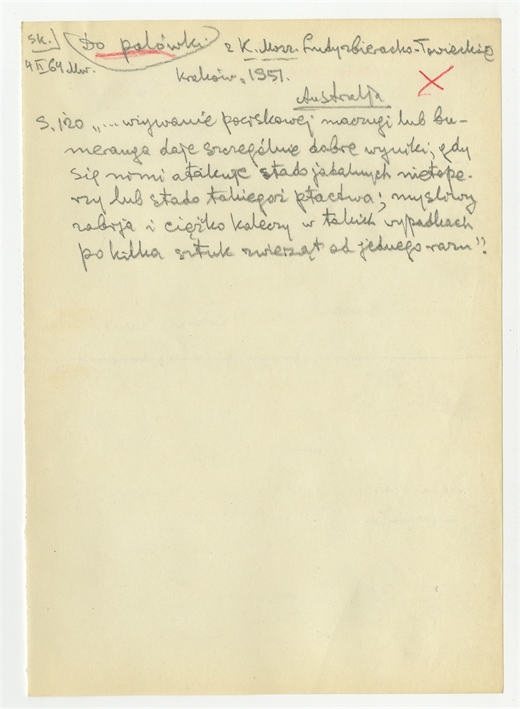 sk.] Do polówki z K. Mosz. Ludy zbieracko-łowieckie
4 II 64 Mw. Kraków, 1951.
Australja
S. 120 „... używanie pociskowej maczugi lub bu-
meranga daje szczególnie dobre wyniki, gdy
się nimi atakuje stado jadalnych nietope-
rzy lub stado takiegoż ptactwa; myśliwy
zabija i ciężko kaleczy w takich wypadkach
po kilka sztuk zwierząt od jednego razu”.